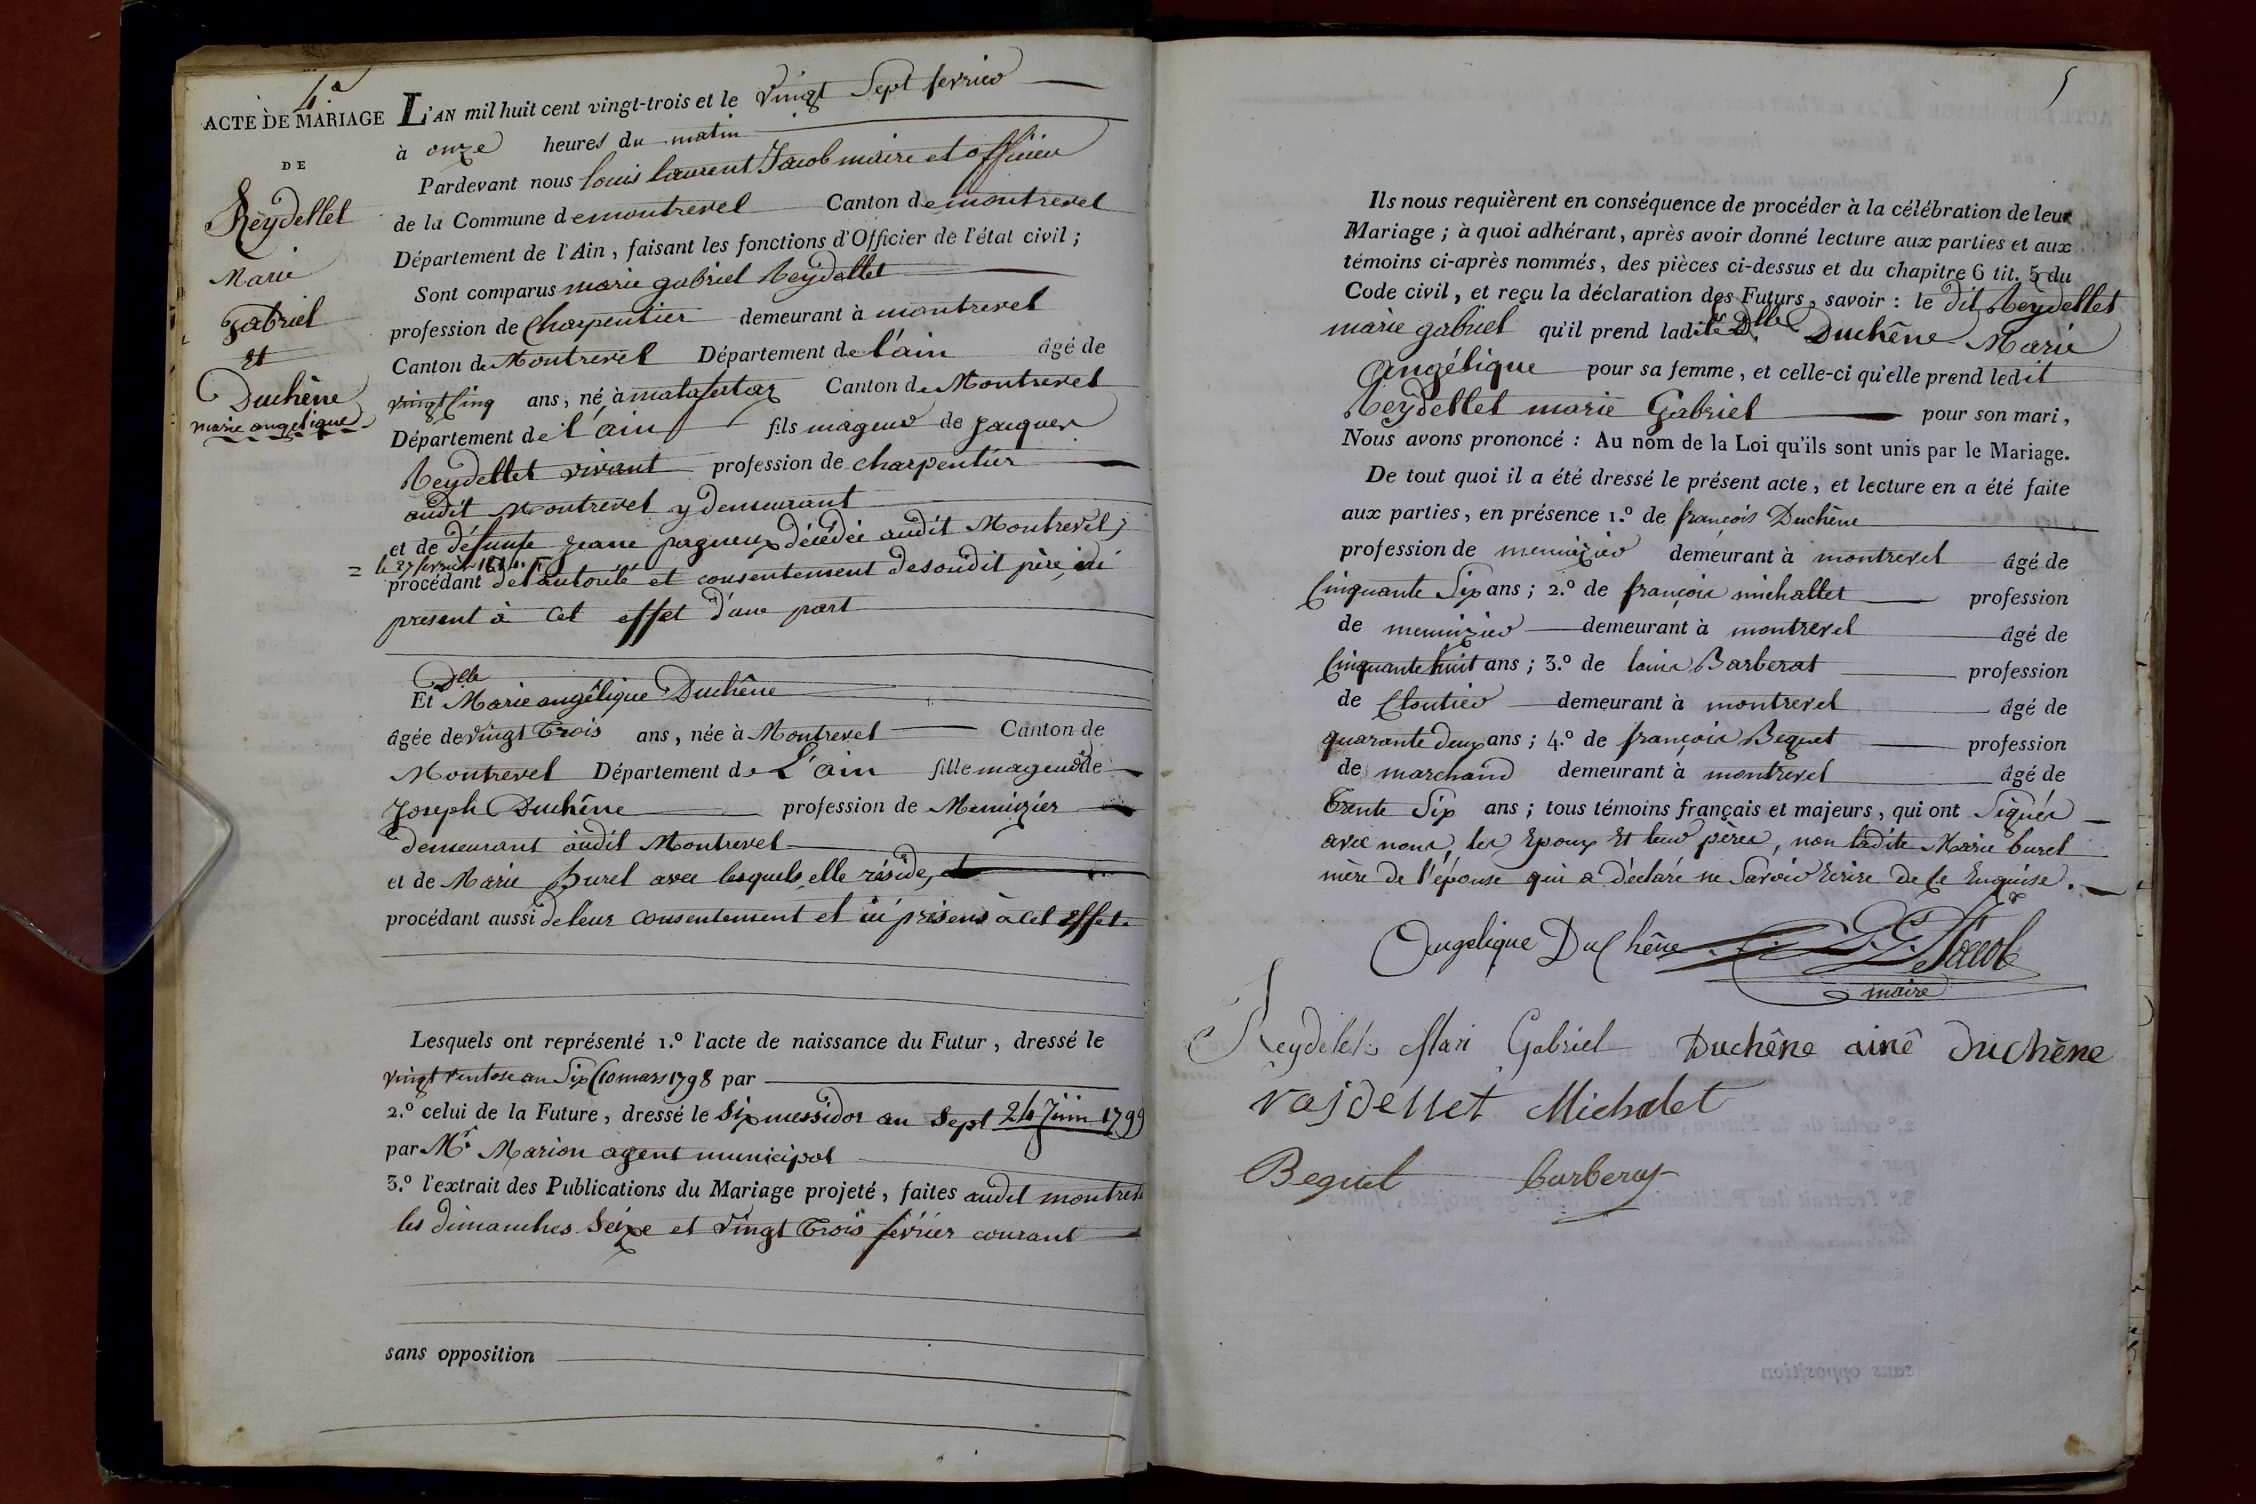 4.e
ACTE DE MARIAGE
DE
Reydellet
Marie
gabriel
Et
Duchêne
marie angélique
L'AN mil huit cent vingt-trois et le vingt Sept fevrier
à onze heures du matin
Pardevant nous louis laurent Jacob maire et officier
de la Commune de montrevel Canton de montrevel
Département de l'Ain, faisant les fonctions d'Officier de l'état civil;
Sont comparus marie gabriel Reydellet
profession de Charpentier demeurant à montrevel
Canton de Montrevel Département de l'ain âgé de
vingt Cinq ans, né à malafretaz Canton de Montrevel
Département de l'ain fils mageur de Jacques
Reydellet vivant profession de charpentier
audit Montrevel y demeurant
et de défunte Jeanne pagneux décédée audit Montrevel,
= le 27 fevrier
procédant de l'autorité et consentement de soudit père, ici
présent à cet effet d'une part
Dlle
Et Marie angélique Duchêne
âgée de vingt Trois ans, née à Montrevel Canton de
Montrevel Département de L'ain fille mageure de
Joseph Duchêne profession de Menuizier
demeurant audit Montrevel
et de Marie Burel avec lesquels elle réside,
procédant aussi de leur consentement et ici présens à cet effet.
Lesquels ont représenté 1.º l'acte de naissance du Futur, dressé le
vingt ventose an Six (10 mars 1798 par
2.º celui de la Future, dressé le Six messidor an Sept 24 Juin 1799
par Mr Marion agent municipal
3.º l'extrait des Publications du Mariage projeté, faites audit montrevel
les dimanches Seize et vingt Trois février courant
sans opposition
5
Ils nous requièrent en conséquence de procéder à la célébration de leur
Mariage; à quoi adhérant, après avoir donné lecture aux parties et aux
témoins ci-après nommés, des pièces ci-dessus et du chapitre 6 tit. 5 du
Code civil, et reçu la déclaration des Futurs, savoir: le dit Reydellet
marie gabriel qu'il prend ladite Dlle Duchêne Marie
Angélique pour sa femme, et celle-ci qu'elle prend ledit
Reydellet marie Gabriel pour son mari,
Nous avons prononcé: Au nom de la Loi qu'ils sont unis par le Mariage.
De tout quoi il a été dressé le présent acte, et lecture en a été faite
aux parties, en présence 1.º de françois Duchêne
profession de menuizier demeurant à montrevel âgé de
Cinquante Six ans; 2.º de françois michallet profession
de menuizier demeurant à montrevel âgé de
Cinquante huit ans; 3.º de louis Barberat profession
de Cloutier demeurant à montrevel âgé de
quarante deux ans; 4.º de françois Beguet profession
de marchand demeurant à montrevel âgé de
Trente Six ans; tous témoins français et majeurs, qui ont Signés
avec nous, les Epoux Et leur pères, non ladite Marie burel
mère de l'épouse qui a déclaré ne Savoir Ecrire de ce Enquise.
Angelique Duchêne Jacob
maire
Reydelet Mari Gabriel Duchêne ainé Duchêne
Rajdellet Michalet
Beguet barberat